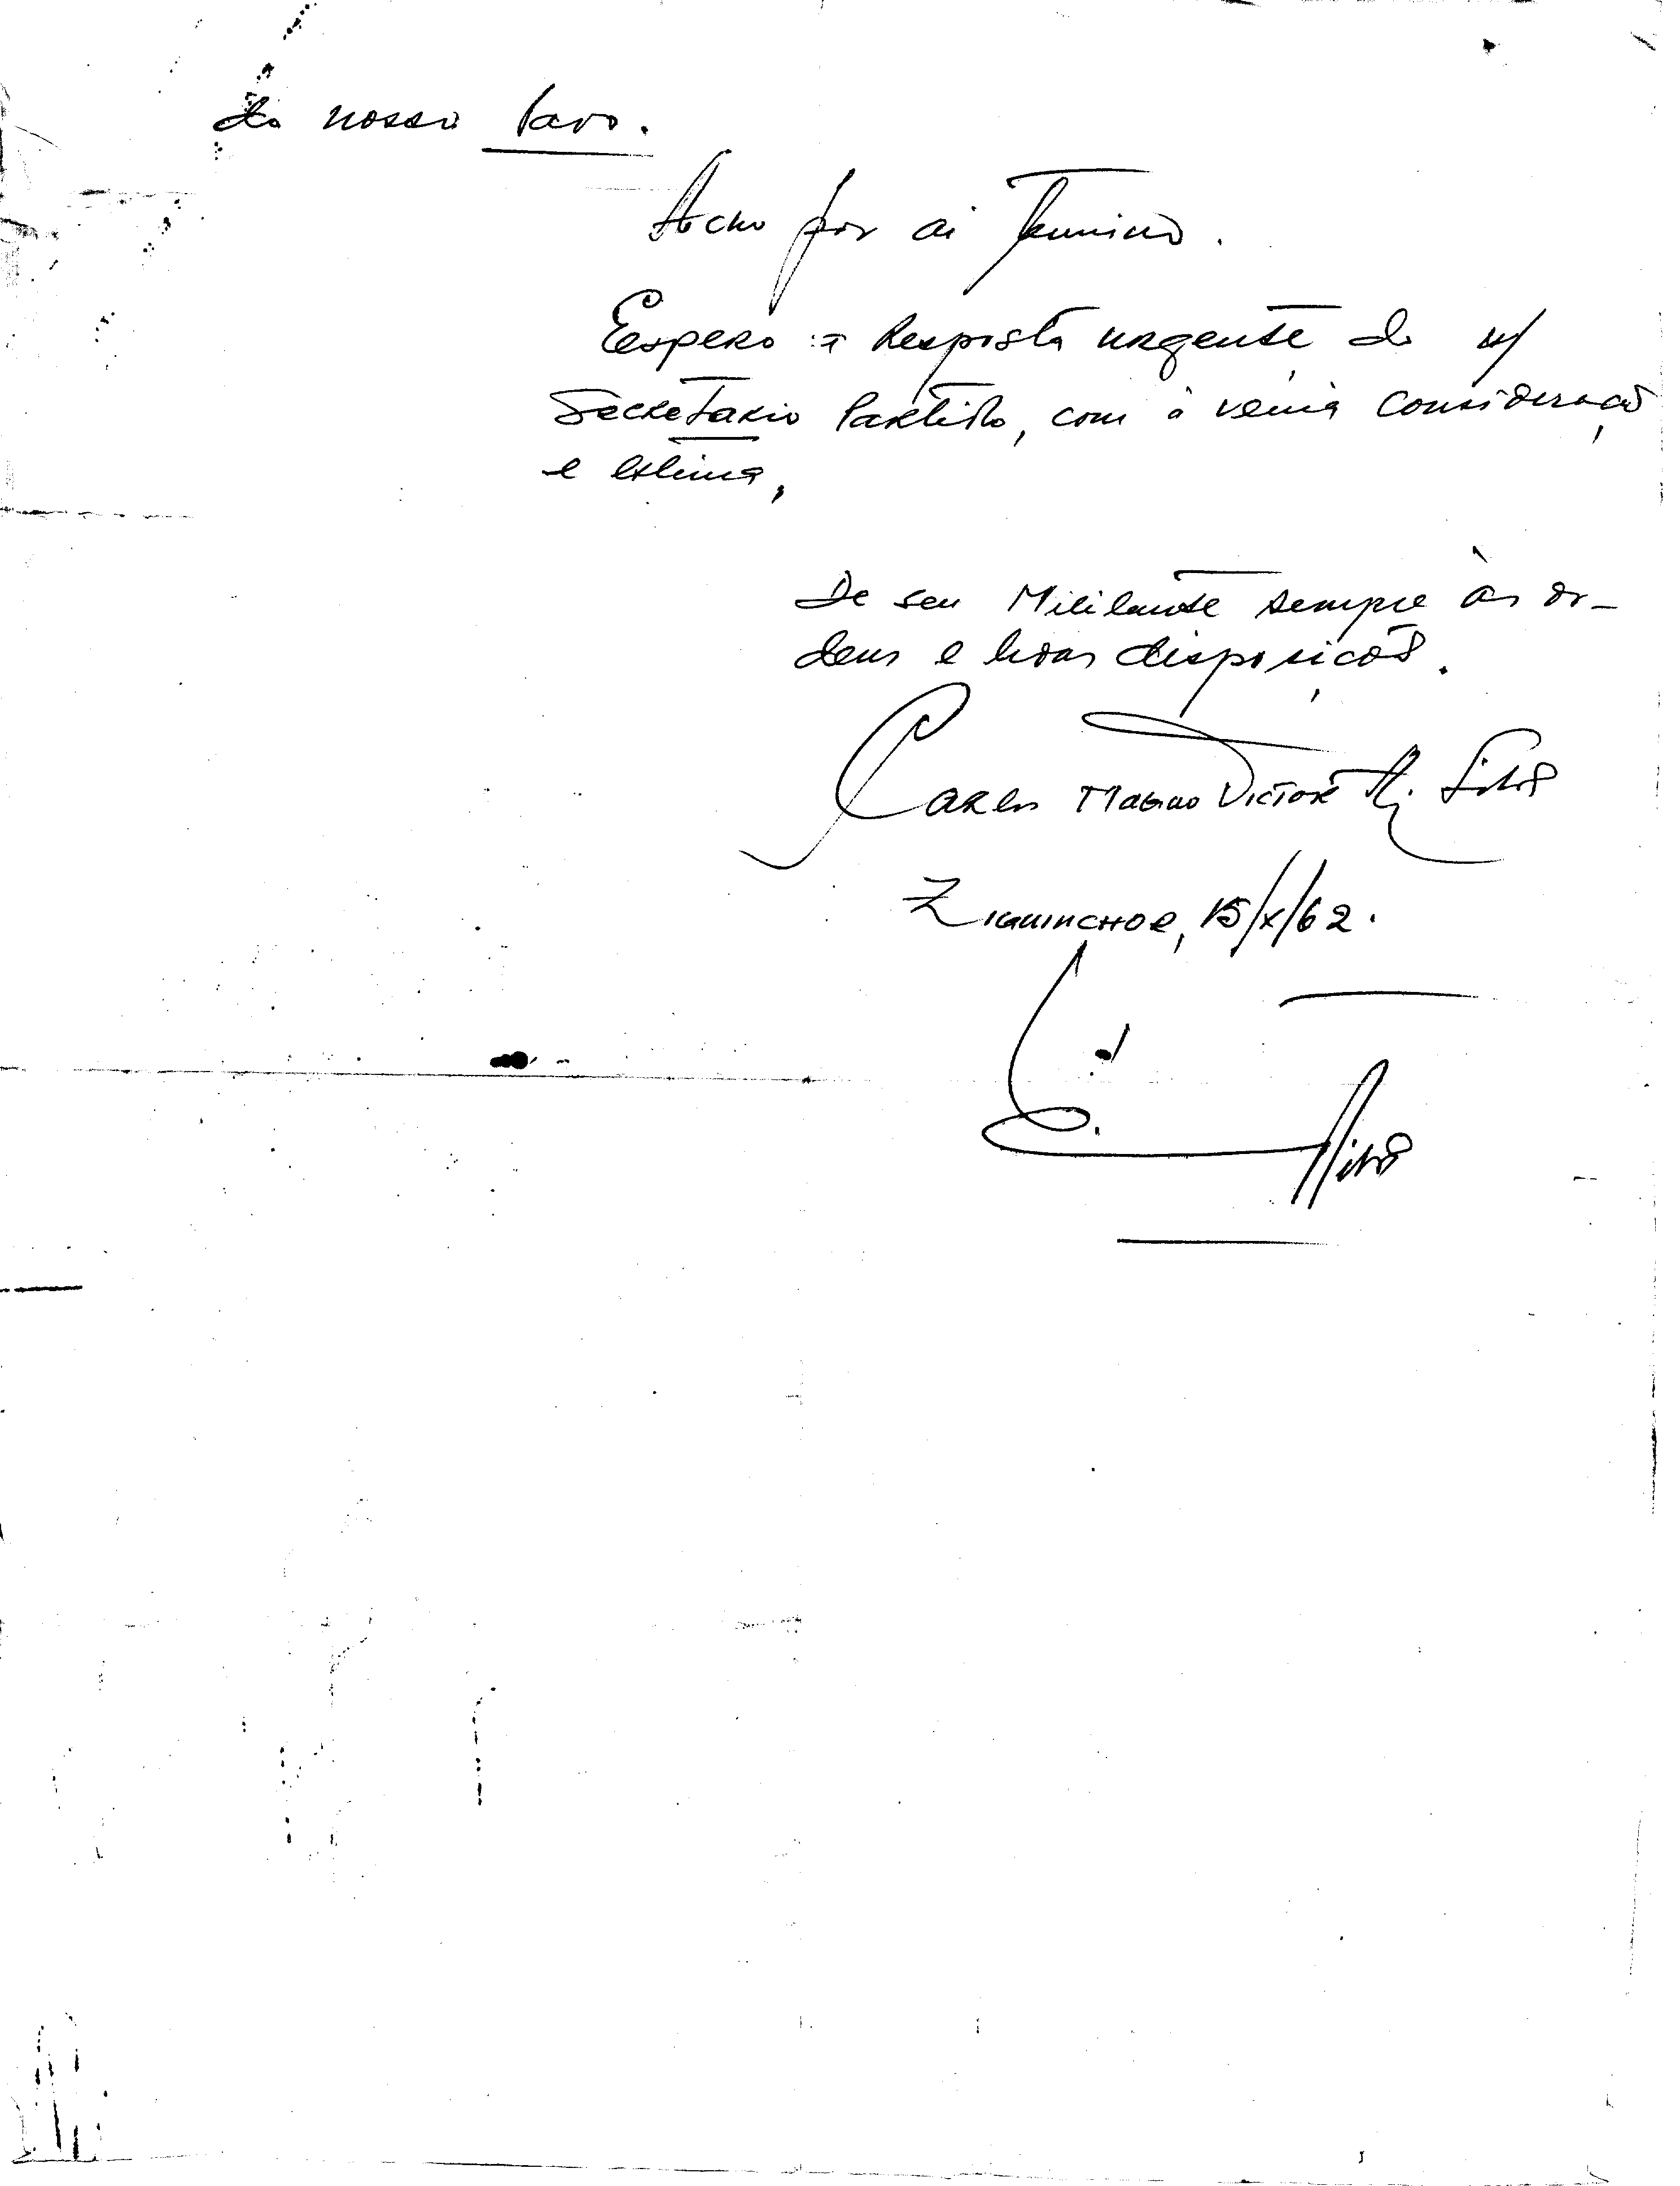 do nosso Povo.
Acho por ai termino.
Espero a Resposta urgente do n/
Secretario Partido, com a venia consideração
e estima,
De seu Militante sempre às or-
dens e boas disposições.
Carlos Magno Victor
Ziguinchor, 15/X/62.